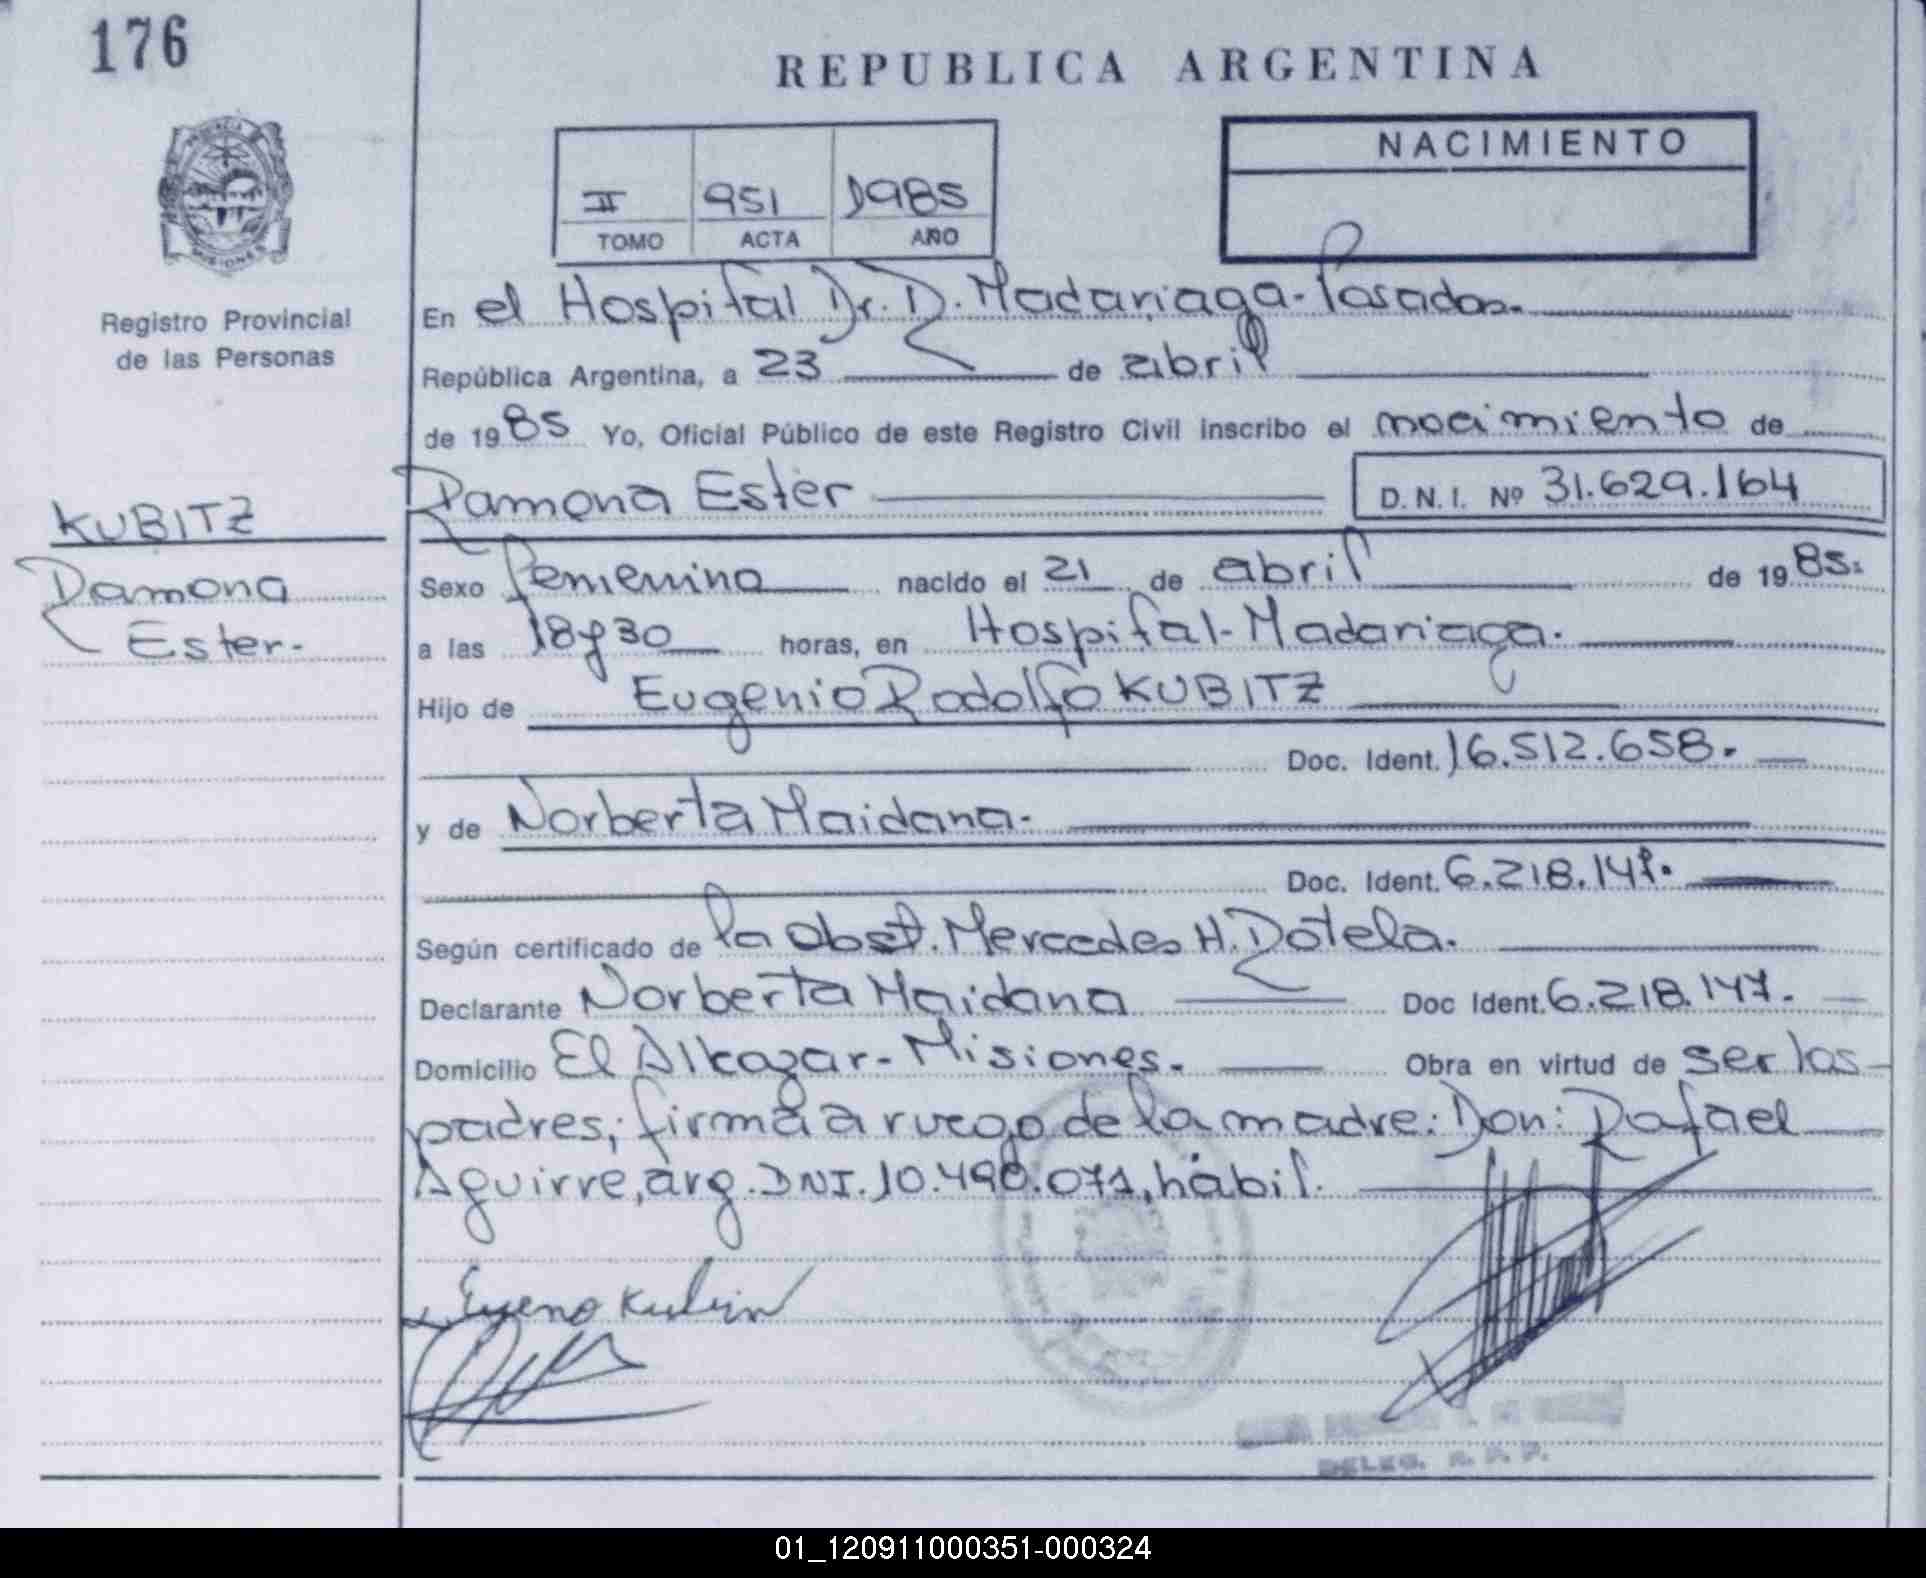 176
REPUBLICA ARGENTINA
NACIMIENTO
II 951 1985
TOMO ACTA AÑO
MISIONES
Registro Provincial
de las Personas
En el Hospital Dr. R. Madariaga-Posadas.
República Argentina, a 23 de abril
de 1985 Yo, Oficial Público de este Registro Civil inscribo el nacimiento de
Ramona Ester D.N.I. Nº 31.629.164
KUBITZ
Ramona
Ester-
Sexo femenino nacido el 21 de abril de 1985.
a las 18y30 horas, en Hospital-Madariaga.
Hijo de Eugenio Rodolfo KUBITZ
Doc. Ident. 16.512.658.
y de Norberta Maidana.
Doc. Ident. 6.218.147.
Según certificado de la obst. Mercedes H. Rotela.
Declarante Norberta Maidana Doc Ident. 6.218.147.
Domicilio El Alkazar-Misiones. Obra en virtud de ser los
padres; firma a ruego de la madre: Don: Rafael
Aguirre, arg. DNI. 10.490.071, hábil.
DELEG. R. P. P.
01_120911000351-000324